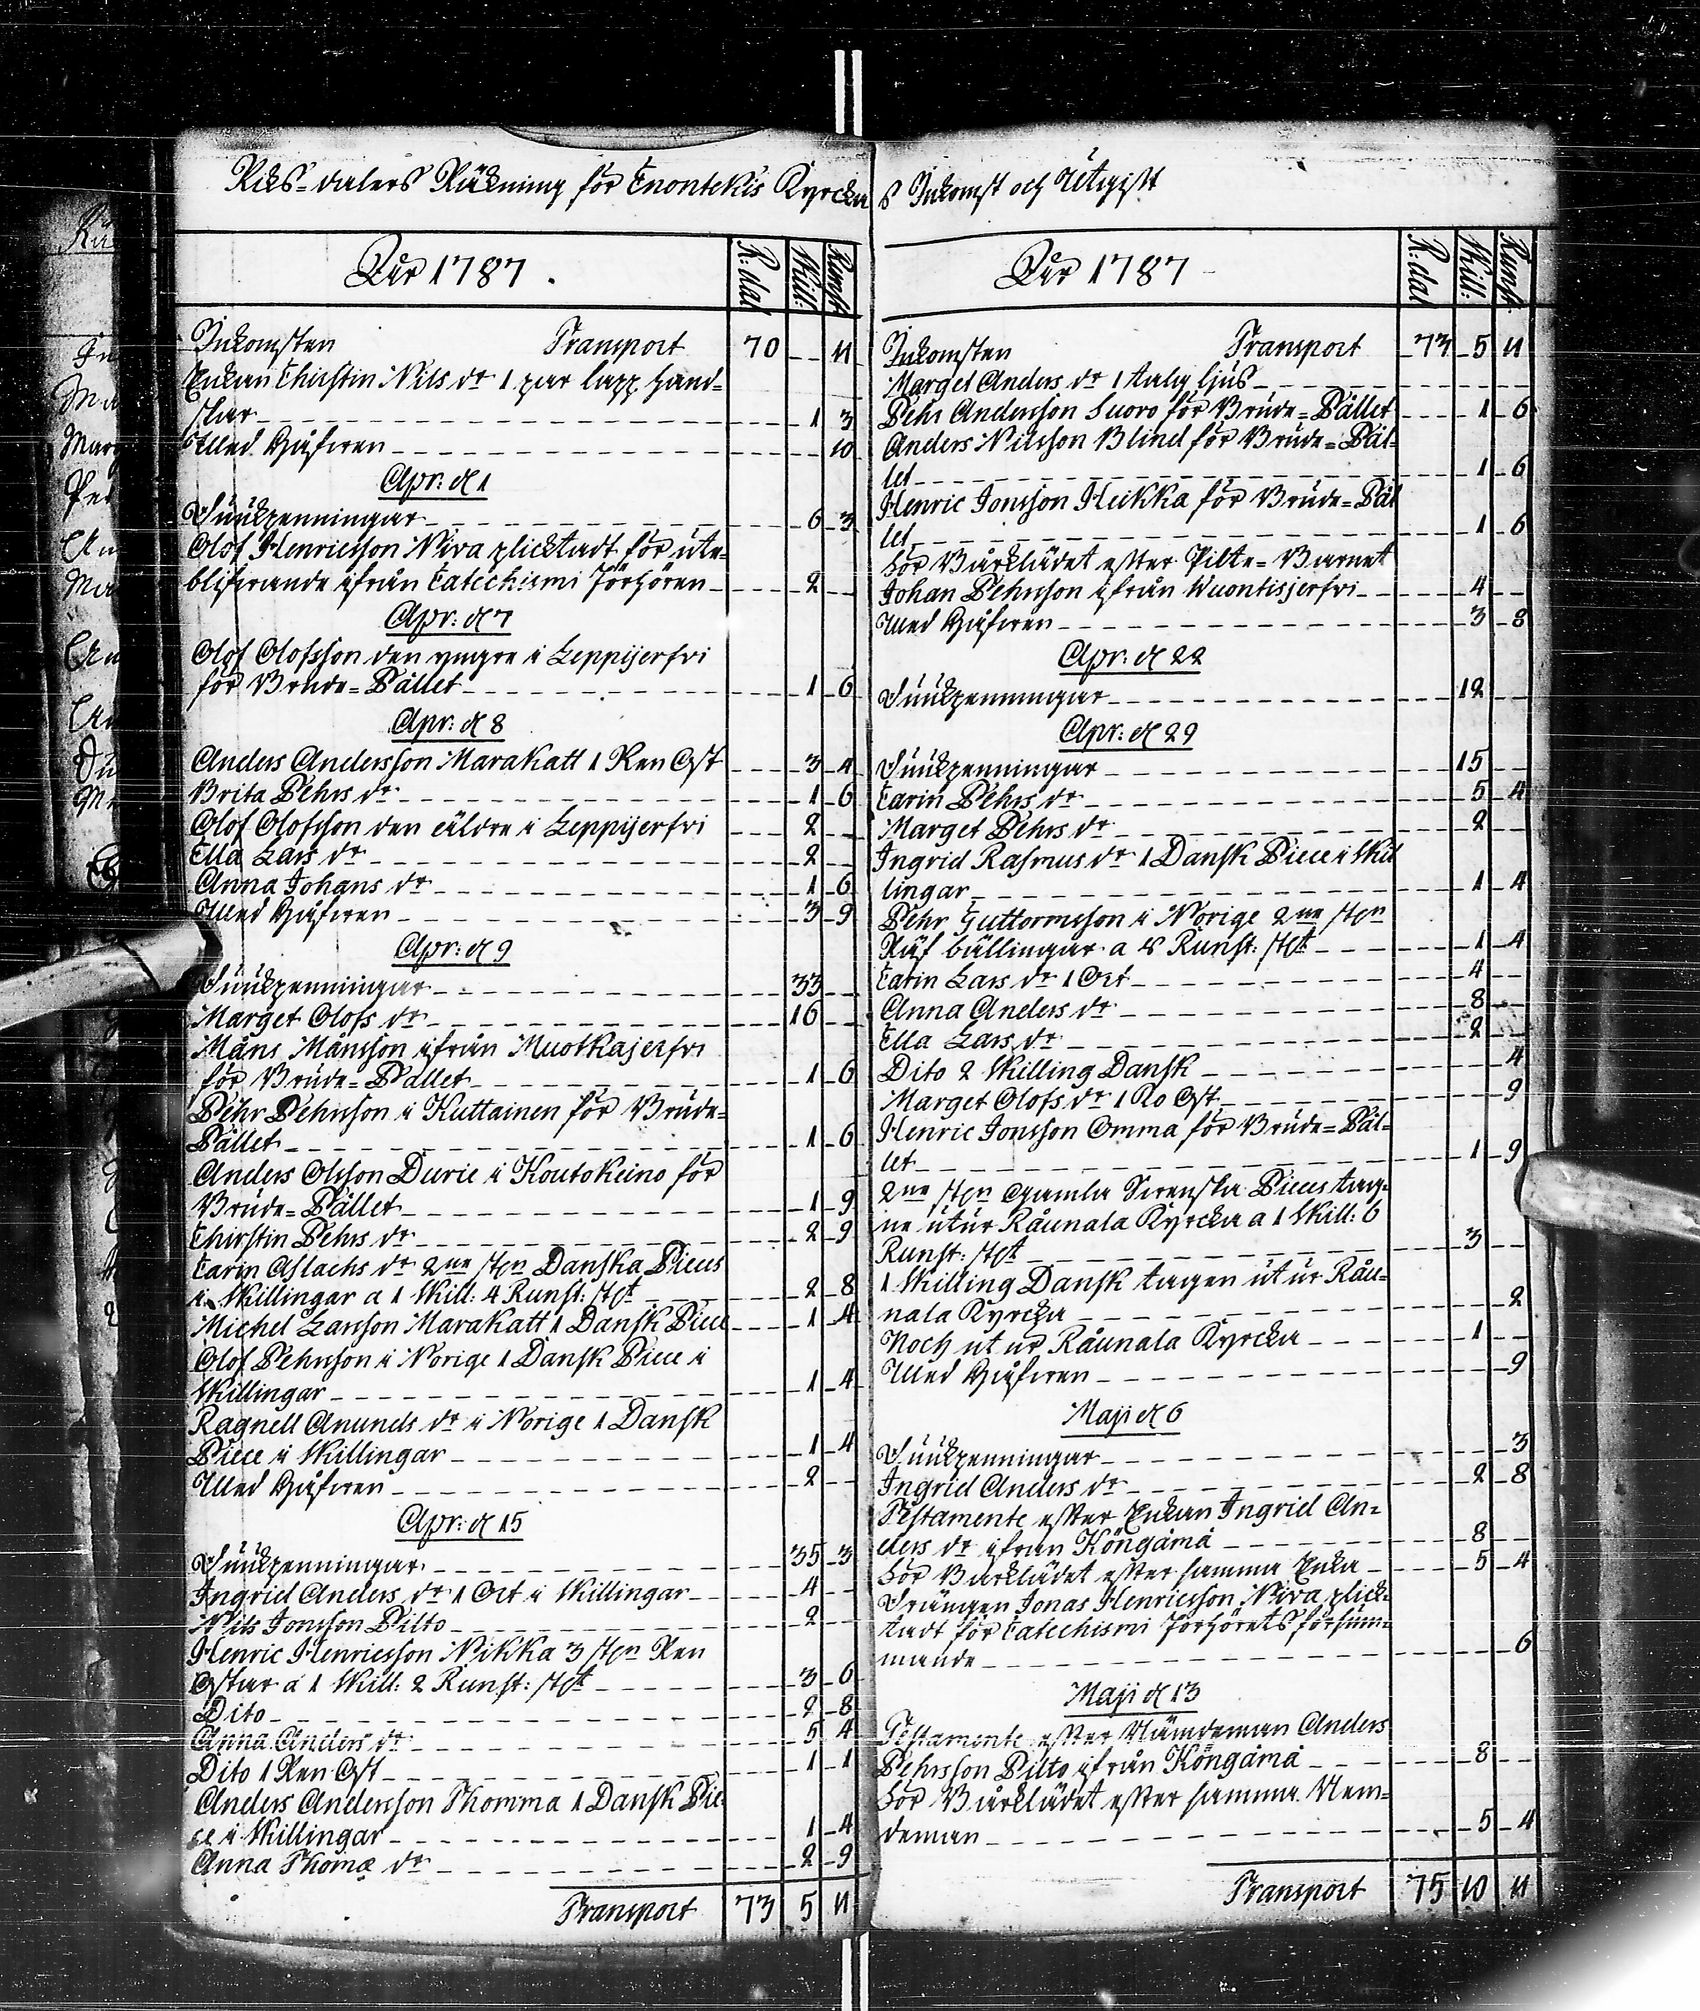 Riks-dalers Räkning för Enontekis Kyrckas Inkomst och Utgift
Åhr 1787. R:dal Skill: Runst.
Inkomsten Transport 70 - 11
Enkan Chirstin Nils dr 1 par lapp hand-
skar 1 3
Med Håfwen 10
Apr: d 1
Siukpenningar 6 3
Olof Henricsson Niva plicktadt för ute-
blifwande ifrån Catechismi Förhören 2
Apr: d 7
Olof Olofsson den yngre i Leppijerfvi
för Brude-Pället 1 6
Apr: d 8
Anders Andersson Marakatt 1 Ren Ost 3 4
Brita Pehrs dr 1 6
Olof Olofsson den äldre i Leppijerfvi 2
Ella Lars dr 2
Anna Johans dr 1 6
Med Håfwen 3 9
Apr: d 9
Siukpenningar 33
Marget Olofs dr 16
Måns Månsson ifrån Muotkajerfvi
för Brude-Pället 1 6
Pehr Pehrsson i Kuttainen för Brude-
Pället 1 6
Anders Olsson Durie i Koutokeino för
Brude-Pället 1 9
Chirstin Pehrs dr 2 9
Carin Aslachs dr 2ne st:n Danska Pieces
i Skillingar a 1 Skill: 4 Runst: st 2 8
Michel Larsson Marakatt 1 Dansk Piece 1 4
Olof Pehrsson i Norige 1 Dansk Piece i
Skillingar 1 4
Ragnell Anunds dr i Norige 1 Dansk
Piece i Skillingar 1 4
Med Håfwen 2
Apr: d 15
Siukpenningar 35 3
Ingrid Anders dr 1 Ort i Skillingar 4
Nils Jonsson Pilto 2
Henric Henricsson Nikka 3 st:n Ren
Ostar a 1 Skill: 2 Runst: st 3 6
Dito 2 8
Anna Anders dr 5 4
Dito 1 Ren Ost 1 1
Anders Andersson Thomma 1 Dansk Pie
ce i Skillingar 1 4
Anna Thomæ dr 2 9
Transport 73 5 11
Åhr 1787 R:dal Skill: Runst.
Inkomsten Transport 73 5 11
Marget Anders dr 1 talg ljus
Pehr Andersson Suoro för Brude-Pället 1 6
Anders Nilsson Blind för Brude-Päl-
let 1 6
Henric Jonsson Heikka för Brude-Päl
let 1 6
För Bårklädet efter Pilte-Barnet
Johan Pehrsson ifrån Wuontisjerfvi 4
Med Håfwen 3 8
Apr: d 22
Siukpenningar 12
Apr: d 29
Siukpenningar 15
Carin Pehrs dr 5 4
Marget Pehrs dr 2
Ingrid Rasmus dr 1 Dansk Piece i Skil
lingar 1 4
Pehr Guttormsson i Norige 2ne st:n
Räf bällingar a 8 Runst: st 1 4
Carin Lars dr 1 Ort 4
Anna Anders dr 8
Ella Lars dr 2
Dito 2 Skilling Dansk 4
Marget Olofs dr 1 Ko Ost 9
Henric Jonsson Omma för Brude-Päl-
let 1 9
2ne st:n gamla Svenska Pieces tag-
ne utur Råunala Kyrcka a 1 Skill: 6
Runst: st 3
1 Skilling Dansk tagen utur Råu-
nala Kyrcka 2
Noch utur Råunala Kyrcka 1
Med Håfwen 9
Maji d 6
Siukpenningar 3
Ingrid Anders dr 2 8
Testamente efter Enkan Ingrid An-
ders dr ifrån Köngämä 8
För Bårklädet efter samma Enka 5 4
Drängen Jonas Henricsson Niva plick-
tadt för Catechismi Förhörets försum-
mande 6
Maji d 13
Testamente efter Nämdeman Anders
Pehrsson Pilto ifrån Köngämä 8
För Bårklädet efter samma Nem-
deman 5 4
Transport 75 10 11